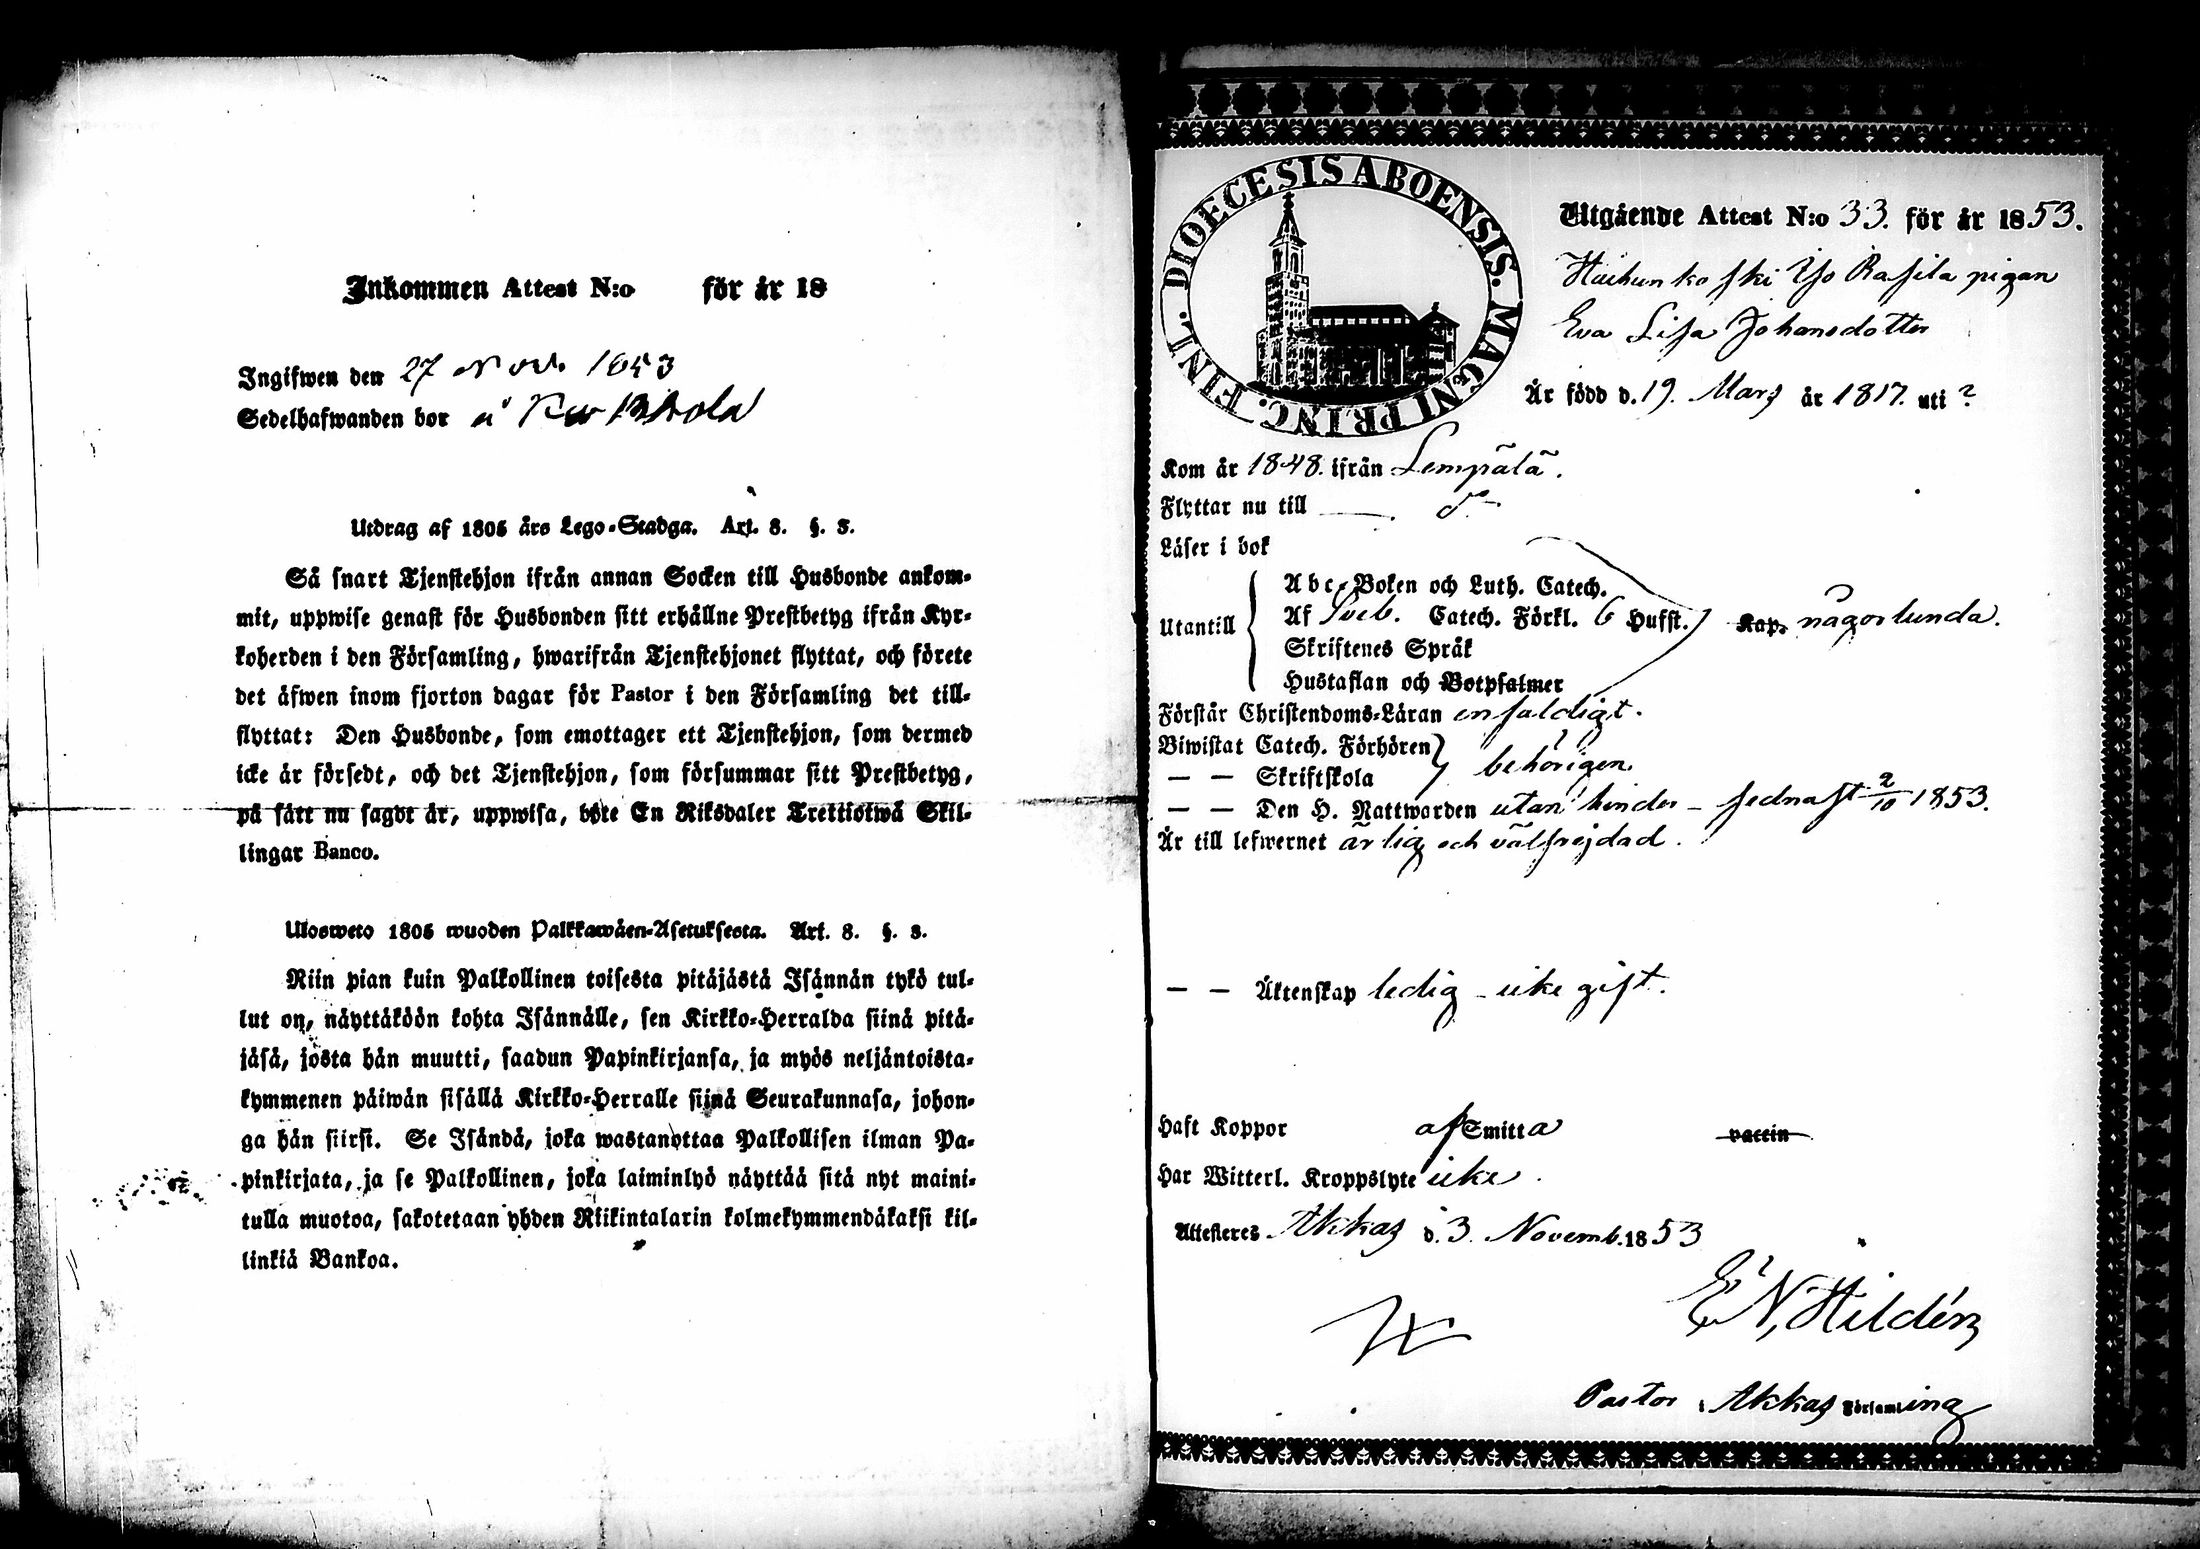 Inkommen Attest N:o för år 18
Ingifwen den 27 Nov. 1853
Sedelhafwanden bor å
Utdrag af 1805 års Lego-Stadga. Art. 8. §. 3.
Så snart Tjenstehjon ifrån annan Socken till Husbonde ankom-
mit, uppwise genast för Husbonden sitt erhållne Prestbetyg ifrån Kyr-
koherden i den Församling, hwarifrån Tjenstehjonet flyttat, och förete
det äfwen inom fjorton dagar för Pastor i den Församling det till-
flyttat: Den Husbonde, som emottager ett Tjenstehjon, som dermed
icke är försedt, och det Tjenstehjon, som försummar sitt Prestbetyg,
på sätt nu sagdt är, uppwisa, böte En Riksdaler Trettiotwå Skil-
lingar Banco.
Ulosweto 1805 wuoden Palkkawäen-Asetuksesta. Art. 8. §. 3.
Niin pian kuin Palkollinen toisesta pitäjästä Isännän tykö tul-
lut on, näyttäköön kohta Isännälle, sen Kirkko-Herralda siinä pitä-
jäsä, josta hän muutti, saadun Papinkirjansa, ja myös neljäntoista-
kymmenen päiwän sisällä Kirkko-Herralle siinä Seurakunnasa, johon-
ga hän siirsi. Se Isändä, joka wastanottaa Palkollisen ilman Pa-
pinkirjata, ja se Palkollinen, joka laiminlyö näyttää sitä nyt maini-
tulla muotoa, sakotetaan yhden Riikintalarin kolmekymmendäkaksi kil-
linkiä Bankoa.
DIOECESIS ABOENSIS. MAGNI PRINC. FINL.
Utgående Attest N:o 33. för år 1853.
Rasila pigan
Eva Lisa Johansdotter
Är född d. 19. Mars år 1817. uti ?
Kom år 1848. ifrån Lempälä.
Flyttar nu till
Läser i bok
Utantill
Abc-Boken och Luth. Catech.
Af Sveb. Catech. Förkl. 6 Hufst. Kap. någorlunda.
Skriftenes Språk
Hustaflan och Botpsalmer
Förstår Christendoms-Läran enfaldigt.
Biwistat Catech. Förhören
— — Skriftskola behörigen.
— — Den H. Nattwarden utan hinder - sednast 2/10 1853.
Är till lefwernet ärlig och välfrejdad.
— — Äktenskap ledig - icke gift.
Haft Koppor af Smitta vaccin
Har Witterl. Kroppslyte icke.
Attesteres Akkas d. 3. Novemb. 1853
E N, Hildén
Pastor i Akkas Församling